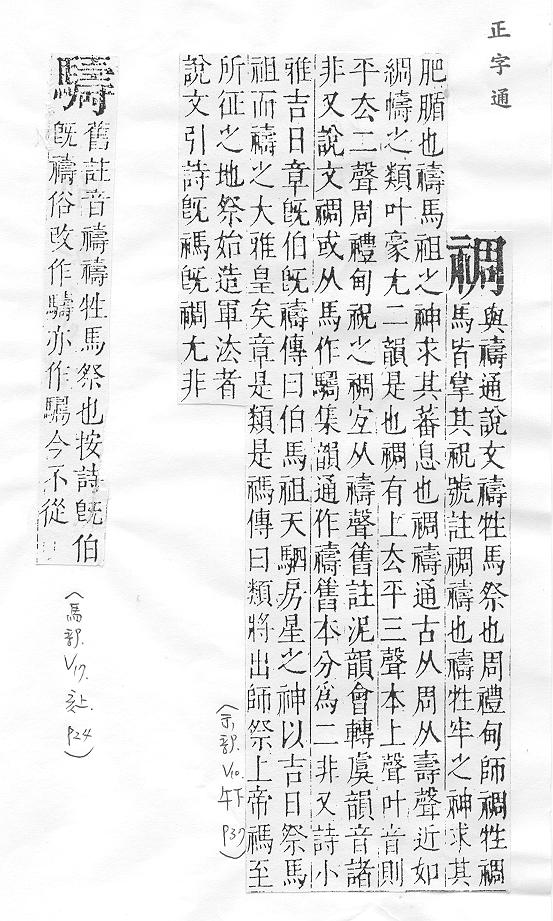 正字通
禂
與禱通說文禱牲馬祭也周禮甸師禂牲禂
馬皆掌其祝號註禂禱也禱牲牢之神求其
肥腯也禱馬祖之神求其蕃息也禂禱通古从周从壽聲近如
綢幬之類叶豪尤二韻是也禂有上去平三聲本上聲叶音則
平去二聲周禮甸祝之禂宜从禱聲舊註泥韻會轉虞韻音諸
非又說文禂或从馬作騆集韻通作禱舊本分爲二非又詩小
雅吉日章旣伯旣禱傳曰伯馬祖天駟房星之神以吉日祭馬
祖而禱之大雅皇矣章是類是禡傳曰類將出師祭上帝禡至
所征之地祭始造軍法者
說文引詩旣禡旣禂尤非
(示部. V10. 午下 P37)
驕
舊註音禱禱牲馬祭也按詩旣伯
旣禱俗改作騆今不從
(馬部. V17. 亥上. P24)